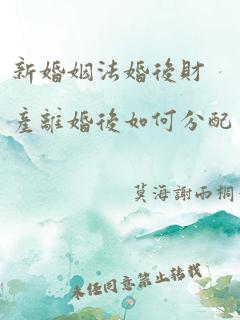 新婚姻法婚後財
產離婚後如何分配
莫海謝雨桐
未任同意禁止转载